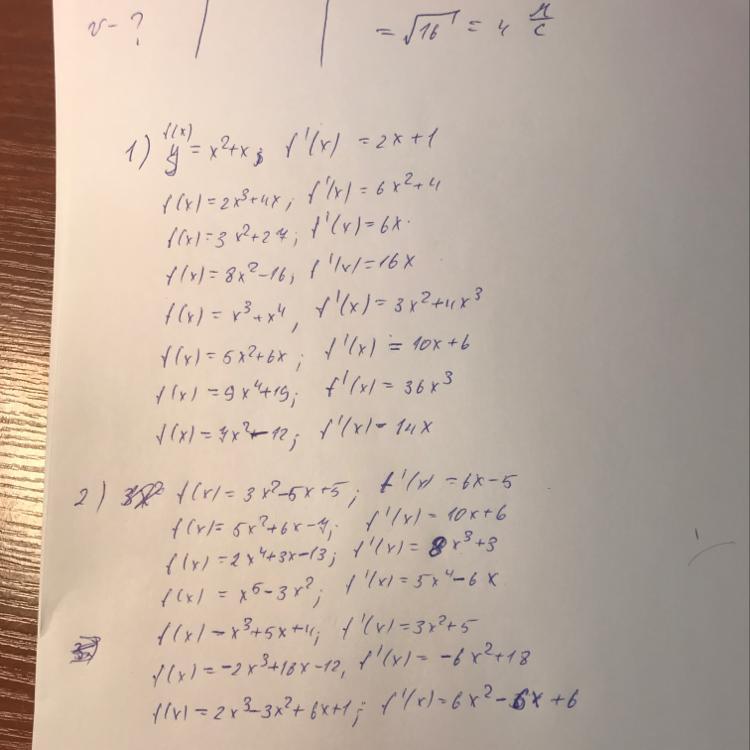 v - ?
= √16 = 4 м/с
f(x)
1) y = x²+x; f'(x) = 2x+1
f(x)=2x³+4x; f'(x)=6x²+4
f(x)=3x²+27; f'(x)=6x.
f(x)=8x²-16, f'(x)=16x
f(x)=x³+x⁴, f'(x)=3x²+4x³
f(x)=5x²+6x; f'(x)=10x+6
f(x)=9x⁴+19; f'(x)=36x³
f(x)=7x²-12; f'(x)-14x
2) f(x)=3x²-5x+5; f'(x)=6x-5
f(x)=5x²+6x-7; f'(x)=10x+6
f(x)=2x⁴+3x-13; f'(x)=8x³+3
f(x)=x⁵-3x²; f'(x)=5x⁴-6x
f(x)-x³+5x+4; f'(x)=3x²+5
f(x)=-2x³+18x-12, f'(x)=-6x²+18
f(x)=2x³-3x²+6x+1; f'(x)=6x²-6x+6